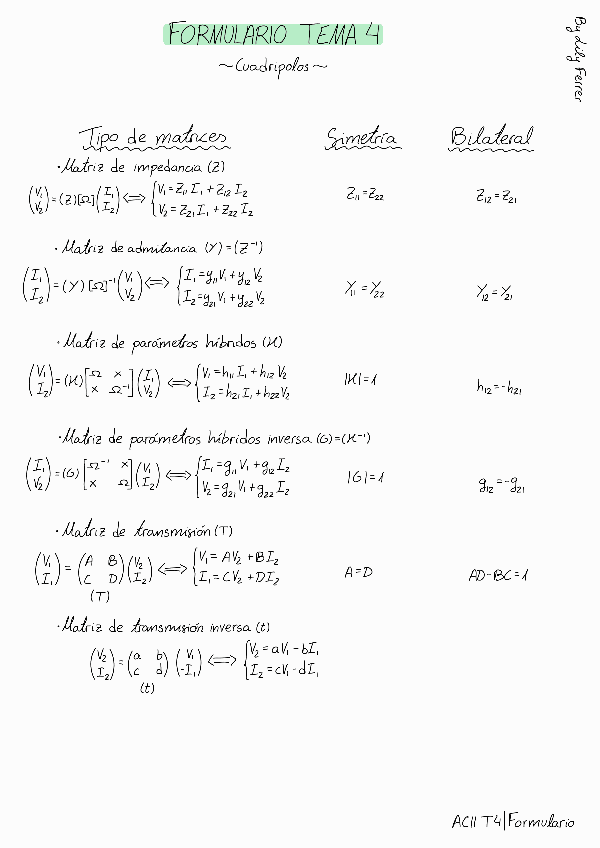 FORMULARIO TEMA 4
~Cuadripolos~
By Lily Ferrer
Tipo de matrices Simetría Bilateral
·Matriz de impedancia (Z)
(V₁ V₂) = (Z)[Ω] (I₁ I₂) ⟺ { V₁ = Z₁₁ I₁ + Z₁₂ I₂ Z₁₁ = Z₂₂ Z₁₂ = Z₂₁
V₂ = Z₂₁ I₁ + Z₂₂ I₂
·Matriz de admitancia (Y) = (Z⁻¹)
(I₁ I₂) = (Y) [Ω]⁻¹ (V₁ V₂) ⟺ { I₁ = y₁₁ V₁ + y₁₂ V₂ Y₁₁ = Y₂₂ Y₁₂ = Y₂₁
I₂ = y₂₁ V₁ + y₂₂ V₂
·Matriz de parámetros híbridos (H)
(V₁ I₂) = (H) [Ω × × Ω⁻¹] (I₁ V₂) ⟺ { V₁ = h₁₁ I₁ + h₁₂ V₂ |H| = 1 h₁₂ = -h₂₁
I₂ = h₂₁ I₁ + h₂₂ V₂
·Matriz de parámetros híbridos inversa (G) = (H⁻¹)
(I₁ V₂) = (G) [Ω⁻¹ × × Ω] (V₁ I₂) ⟺ { I₁ = g₁₁ V₁ + g₁₂ I₂ |G| = 1 g₁₂ = -g₂₁
V₂ = g₂₁ V₁ + g₂₂ I₂
·Matriz de transmisión (T)
(V₁ I₁) = (A B C D) (V₂ I₂) ⟺ { V₁ = AV₂ + BI₂ A = D AD-BC = 1
I₁ = CV₂ + DI₂
(T)
·Matriz de transmisión inversa (t)
(V₂ I₂) = (a b c d) (V₁ -I₁) ⟺ { V₂ = aV₁ - bI₁
I₂ = cV₁ - dI₁
(t)
ACII T4|Formulario